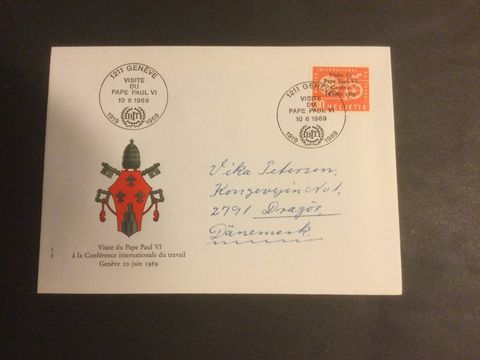 1211 GENÈVE
VISITE
DU
PAPE PAUL VI
10 6 1969
BIT
1919 1969
1211 GENÈVE
VISITE
DU
PAPE PAUL VI
10 6 1969
BIT
1919 1969
INTERNATIONAL
Visite du
Pape Paul VI
Genève
HELVETIA
Vika Petersen,
Kongevejen No 1,
2791 Dragör,
Dänemark
Visite du Pape Paul VI
à la Conférence internationale du travail
Genève 10 juin 1969